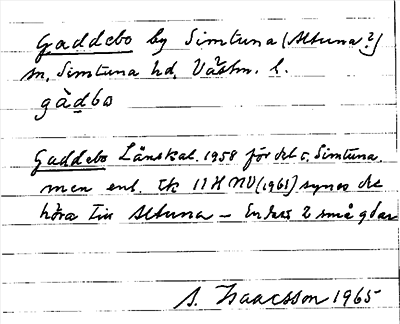 Gaddebo by Simtuna (Altuna?)
sn, Simtuna hd, Västm. l.
gàdbo
Gaddebo Länskal. 1958 för det t. Simtuna,
men enl. Ek 11H NV (1961) synes de
höra till Altuna – Endast 2 små gdar
S. Isaacsson 1965